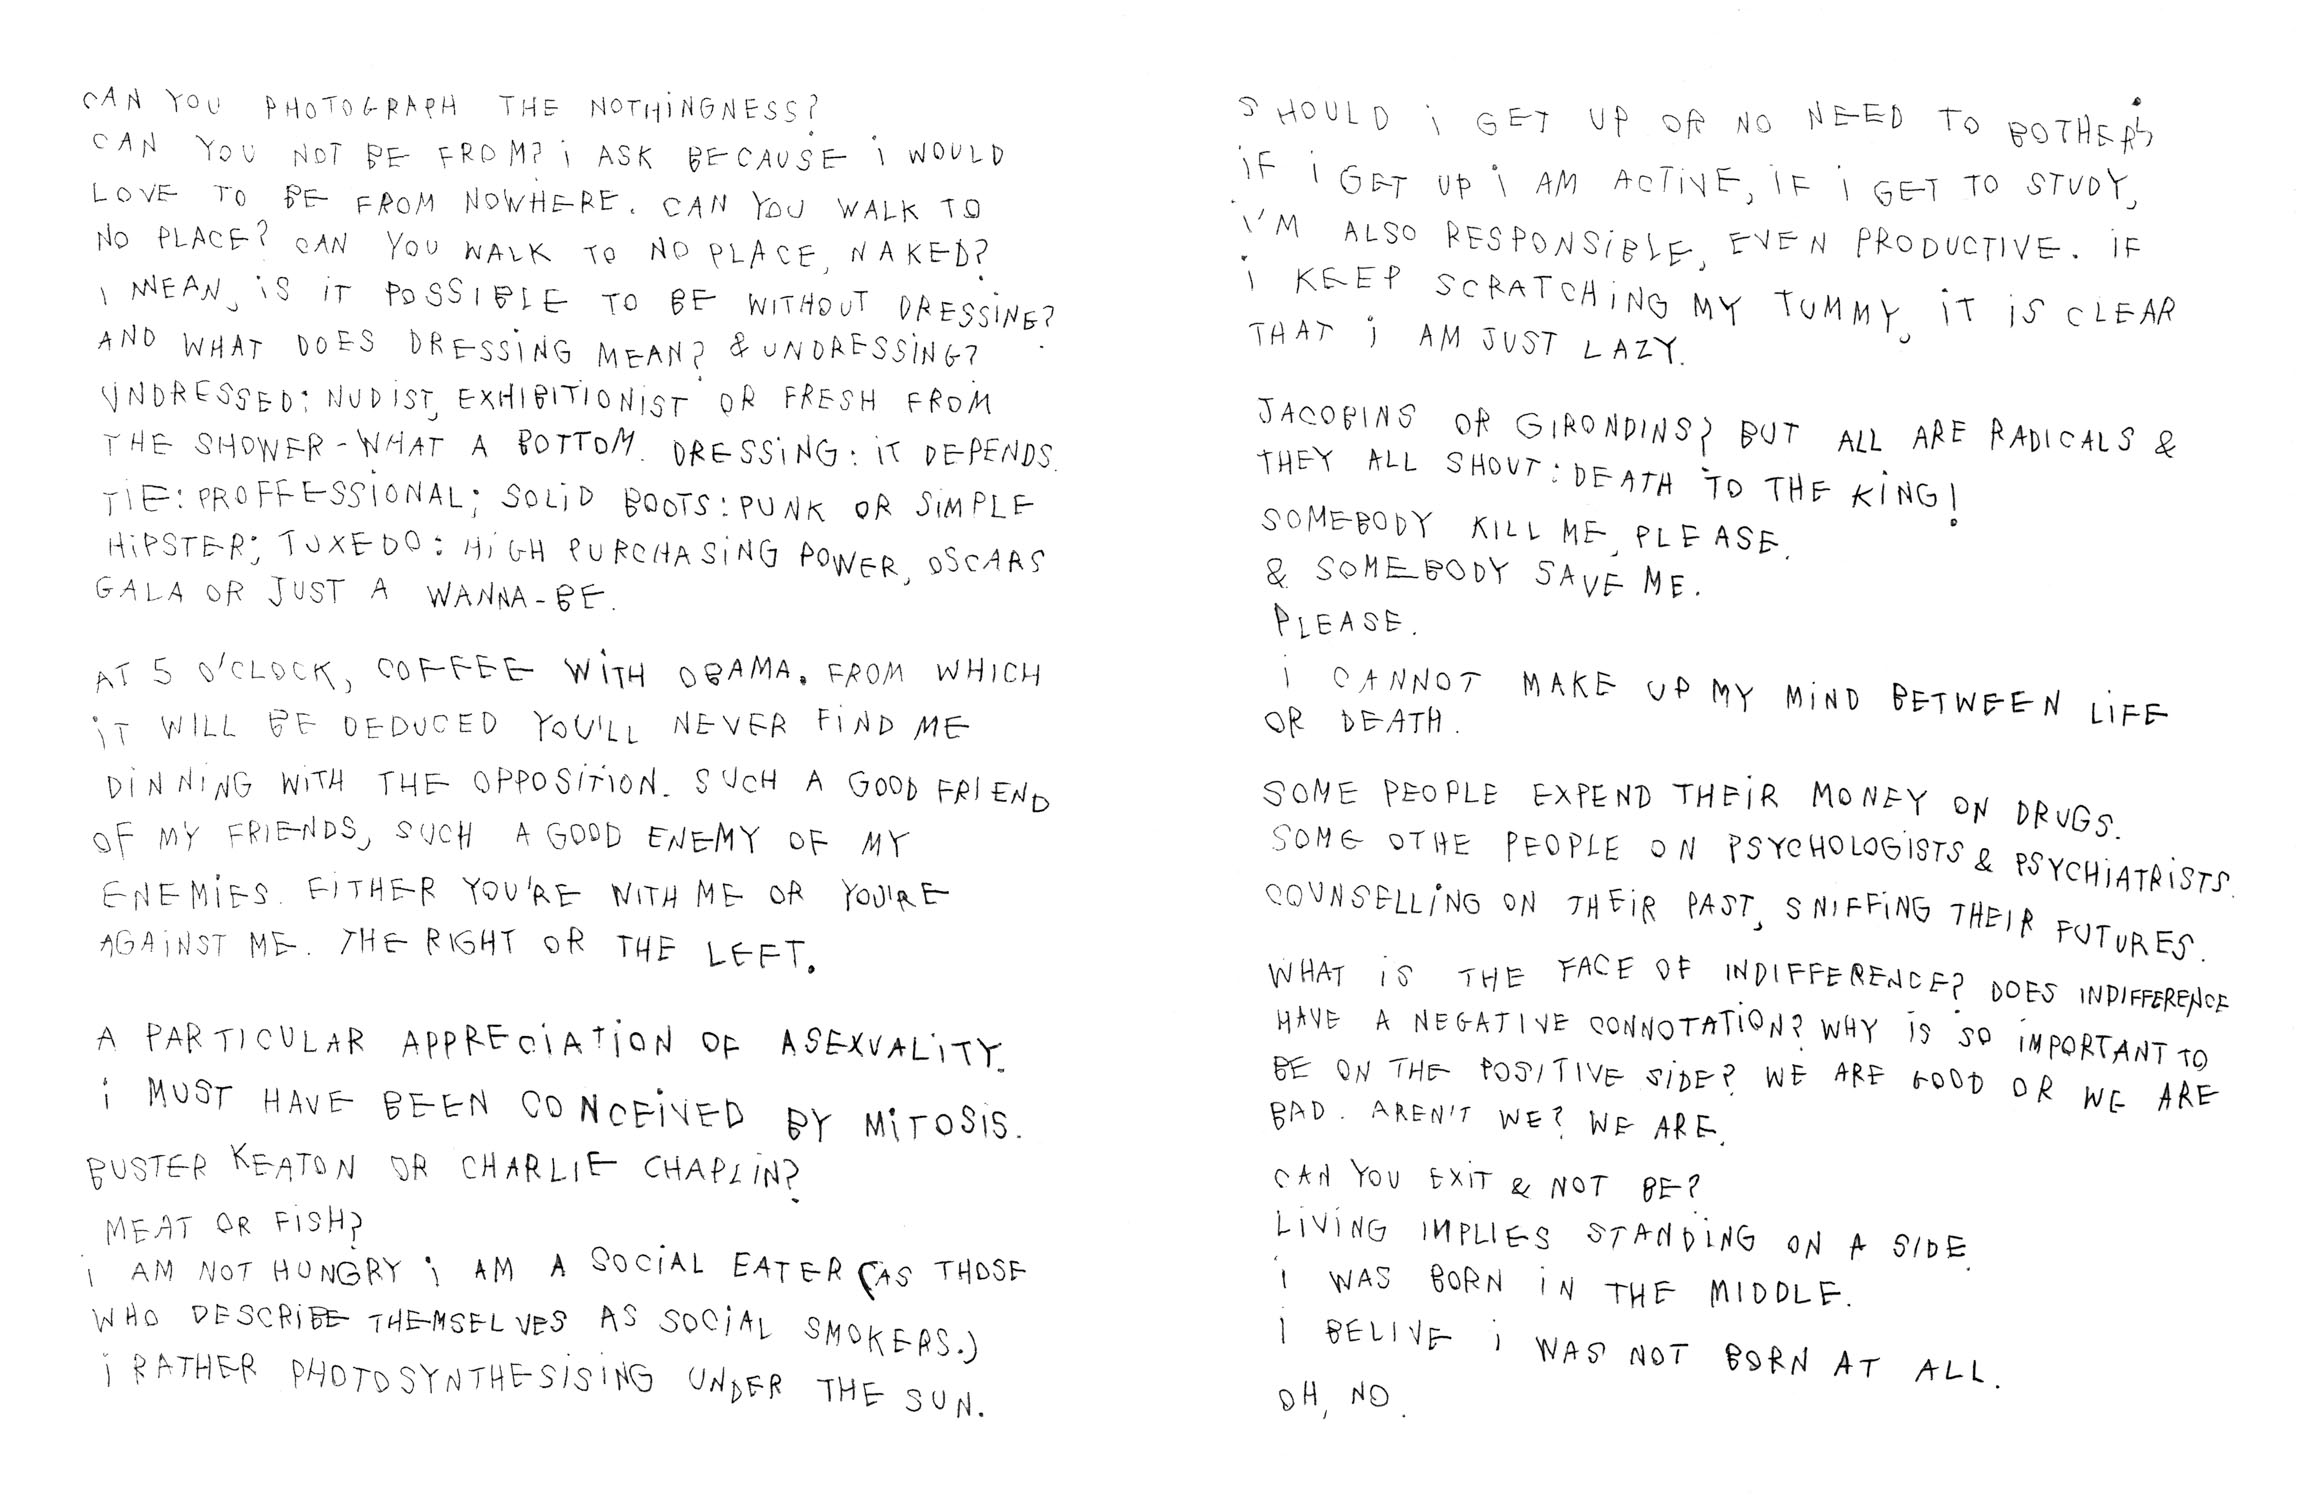 CAN YOU PHOTOGRAPH THE NOTHiNGNESS?
CAN YOU NOT BE FROM? i ASK BECAUSE i WOULD
LOVE TO BE FROM NOWHERE. CAN YOU WALK TO
NO PLACE? CAN YOU WALK TO NO PLACE, NAKED?
i MEAN, iS iT POSSIBLE TO BE WITHOUT DRESSiNG?
AND WHAT DOES DRESSiNG MEAN? & UNDRESSiNG?
UNDRESSED: NUDiST, EXHIBITIONIST OR FRESH FROM
THE SHOWER - WHAT A BOTTOM. DRESSiNG: iT DEPENDS.
TiE: PROFFESSiONAL; SOLiD BOOTS: PUNK OR SiMPLE
HiPSTER; TUXEDO: HiGH PURCHASiNG POWER, OSCARS
GALA OR JUST A WANNA-BE.
AT 5 O'CLOCK, COFFEE WiTH OBAMA. FROM WHICH
iT WILL BE DEDUCED YOU'LL NEVER FiND ME
DiNNiNG WiTH THE OPPOSiTiON. SUCH A GOOD FRIEND
OF MY FRiENDS, SUCH A GOOD ENEMY OF MY
ENEMiES. EiTHER YOU'RE WiTH ME OR YOU'RE
AGAiNST ME. THE RIGHT OR THE LEFT.
A PARTICULAR APPRECiATiON OF ASEXUALiTY.
i MUST HAVE BEEN CONCEiVED BY MiTOSiS.
BUSTER KEATON OR CHARLIE CHAPLiN?
MEAT OR FiSH?
i AM NOT HUNGRY i AM A SOCiAL EATER (AS THOSE
WHO DESCRiBE THEMSELVES AS SOCiAL SMOKERS.)
i RATHER PHOTOSYNTHESiSiNG UNDER THE SUN.
SHOULD i GET UP OR NO NEED TO BOTHER?
iF i GET UP i AM ACTiVE, iF i GET TO STUDY,
i'M ALSO RESPONSiBLE, EVEN PRODUCTIVE. iF
i KEEP SCRATCHiNG MY TUMMY, iT iS CLEAR
THAT i AM JUST LAZY.
JACOBINS OR GiRONDiNS? BUT ALL ARE RADICALS &
THEY ALL SHOUT: DEATH TO THE KiNG!
SOMEBODY KILL ME, PLEASE.
& SOMEBODY SAVE ME.
PLEASE.
i CANNOT MAKE UP MY MiND BETWEEN LiFE
OR DEATH.
SOME PEOPLE EXPEND THEiR MONEY ON DRUGS.
SOME OTHE PEOPLE ON PSYCHOLOGiSTS & PSYCHiATRiSTS.
COUNSELLiNG ON THEiR PAST, SNiFFiNG THEIR FUTURES.
WHAT iS THE FACE OF INDIFFERENCE? DOES INDIFFERENCE
HAVE A NEGATIVE CONNOTATION? WHY iS SO iMPORTANT TO
BE ON THE POSITIVE SiDE? WE ARE GOOD OR WE ARE
BAD. AREN'T WE? WE ARE.
CAN YOU EXiT & NOT BE?
LiViNG IMPLIES STANDiNG ON A SIDE.
i WAS BORN iN THE MIDDLE.
i BELIVE i WAS NOT BORN AT ALL.
OH, NO.